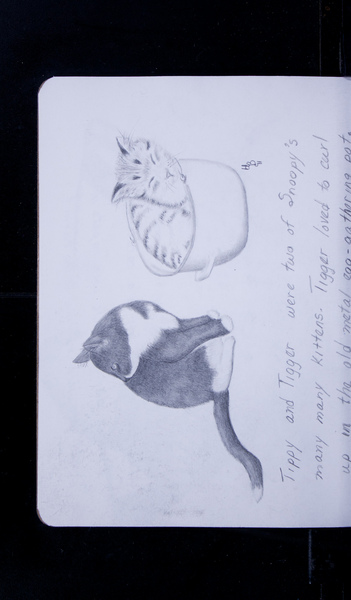 Tippy and Tigger were two of Snoopy's
many many kittens. Tigger loved to curl
up in the old metal egg-gathering pot.